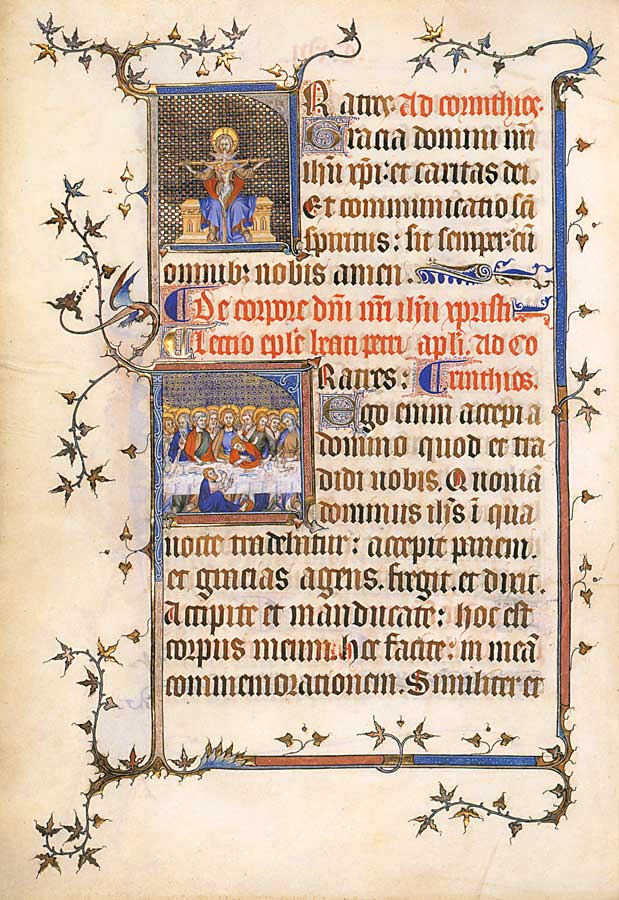 Ratres. Ad corinthios.
Gracia domini nr̄i
ih̄u xp̄i: et caritas dei.
Et communicatio sc̄i
spiritus: sit semper cū
omnibꝫ nobis amen.
De corpore dn̄i nr̄i ih̄u xpristi
Lectio ep̄le beati petri apl̄i. Ad Co
Ratres: Crinthios.
Ego enim accepi a
domino quod et tra
didi uobis. Quoniā
dominus ih̄s ī qua
nocte tradebatur: accepit panem.
et gracias agens. fregit. et dixit.
Accipite et manducate: hoc est
corpus meum. hec facite: in meā
commemorationem. Similiter et